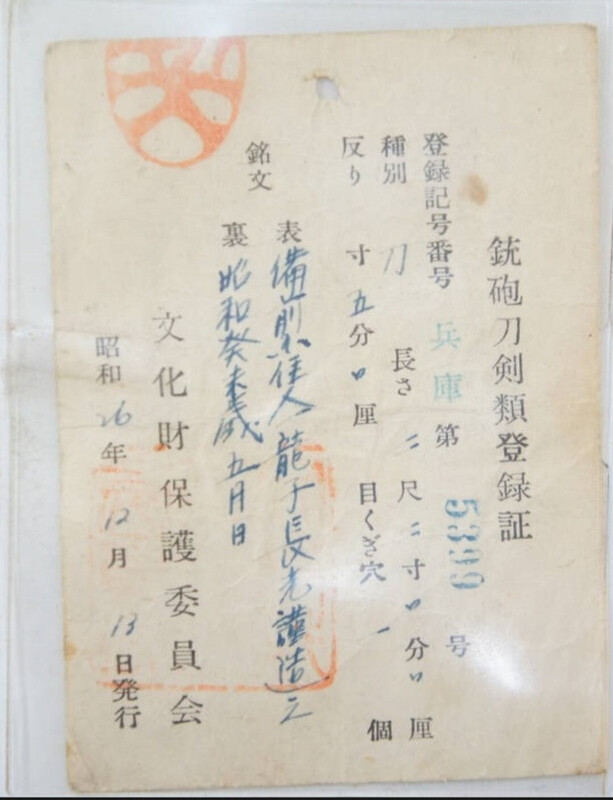 銃砲刀剣類登録証
登録記号番号 兵庫 第 5399 号
種別 刀 長さ 二尺二寸〇分〇厘
反り 寸五分〇厘 目くぎ穴 一 個
銘文 表 備前国住人龍子長光謹造之
裏 昭和癸未歳五月日
文化財保護委員会
昭和26年12月13日発行